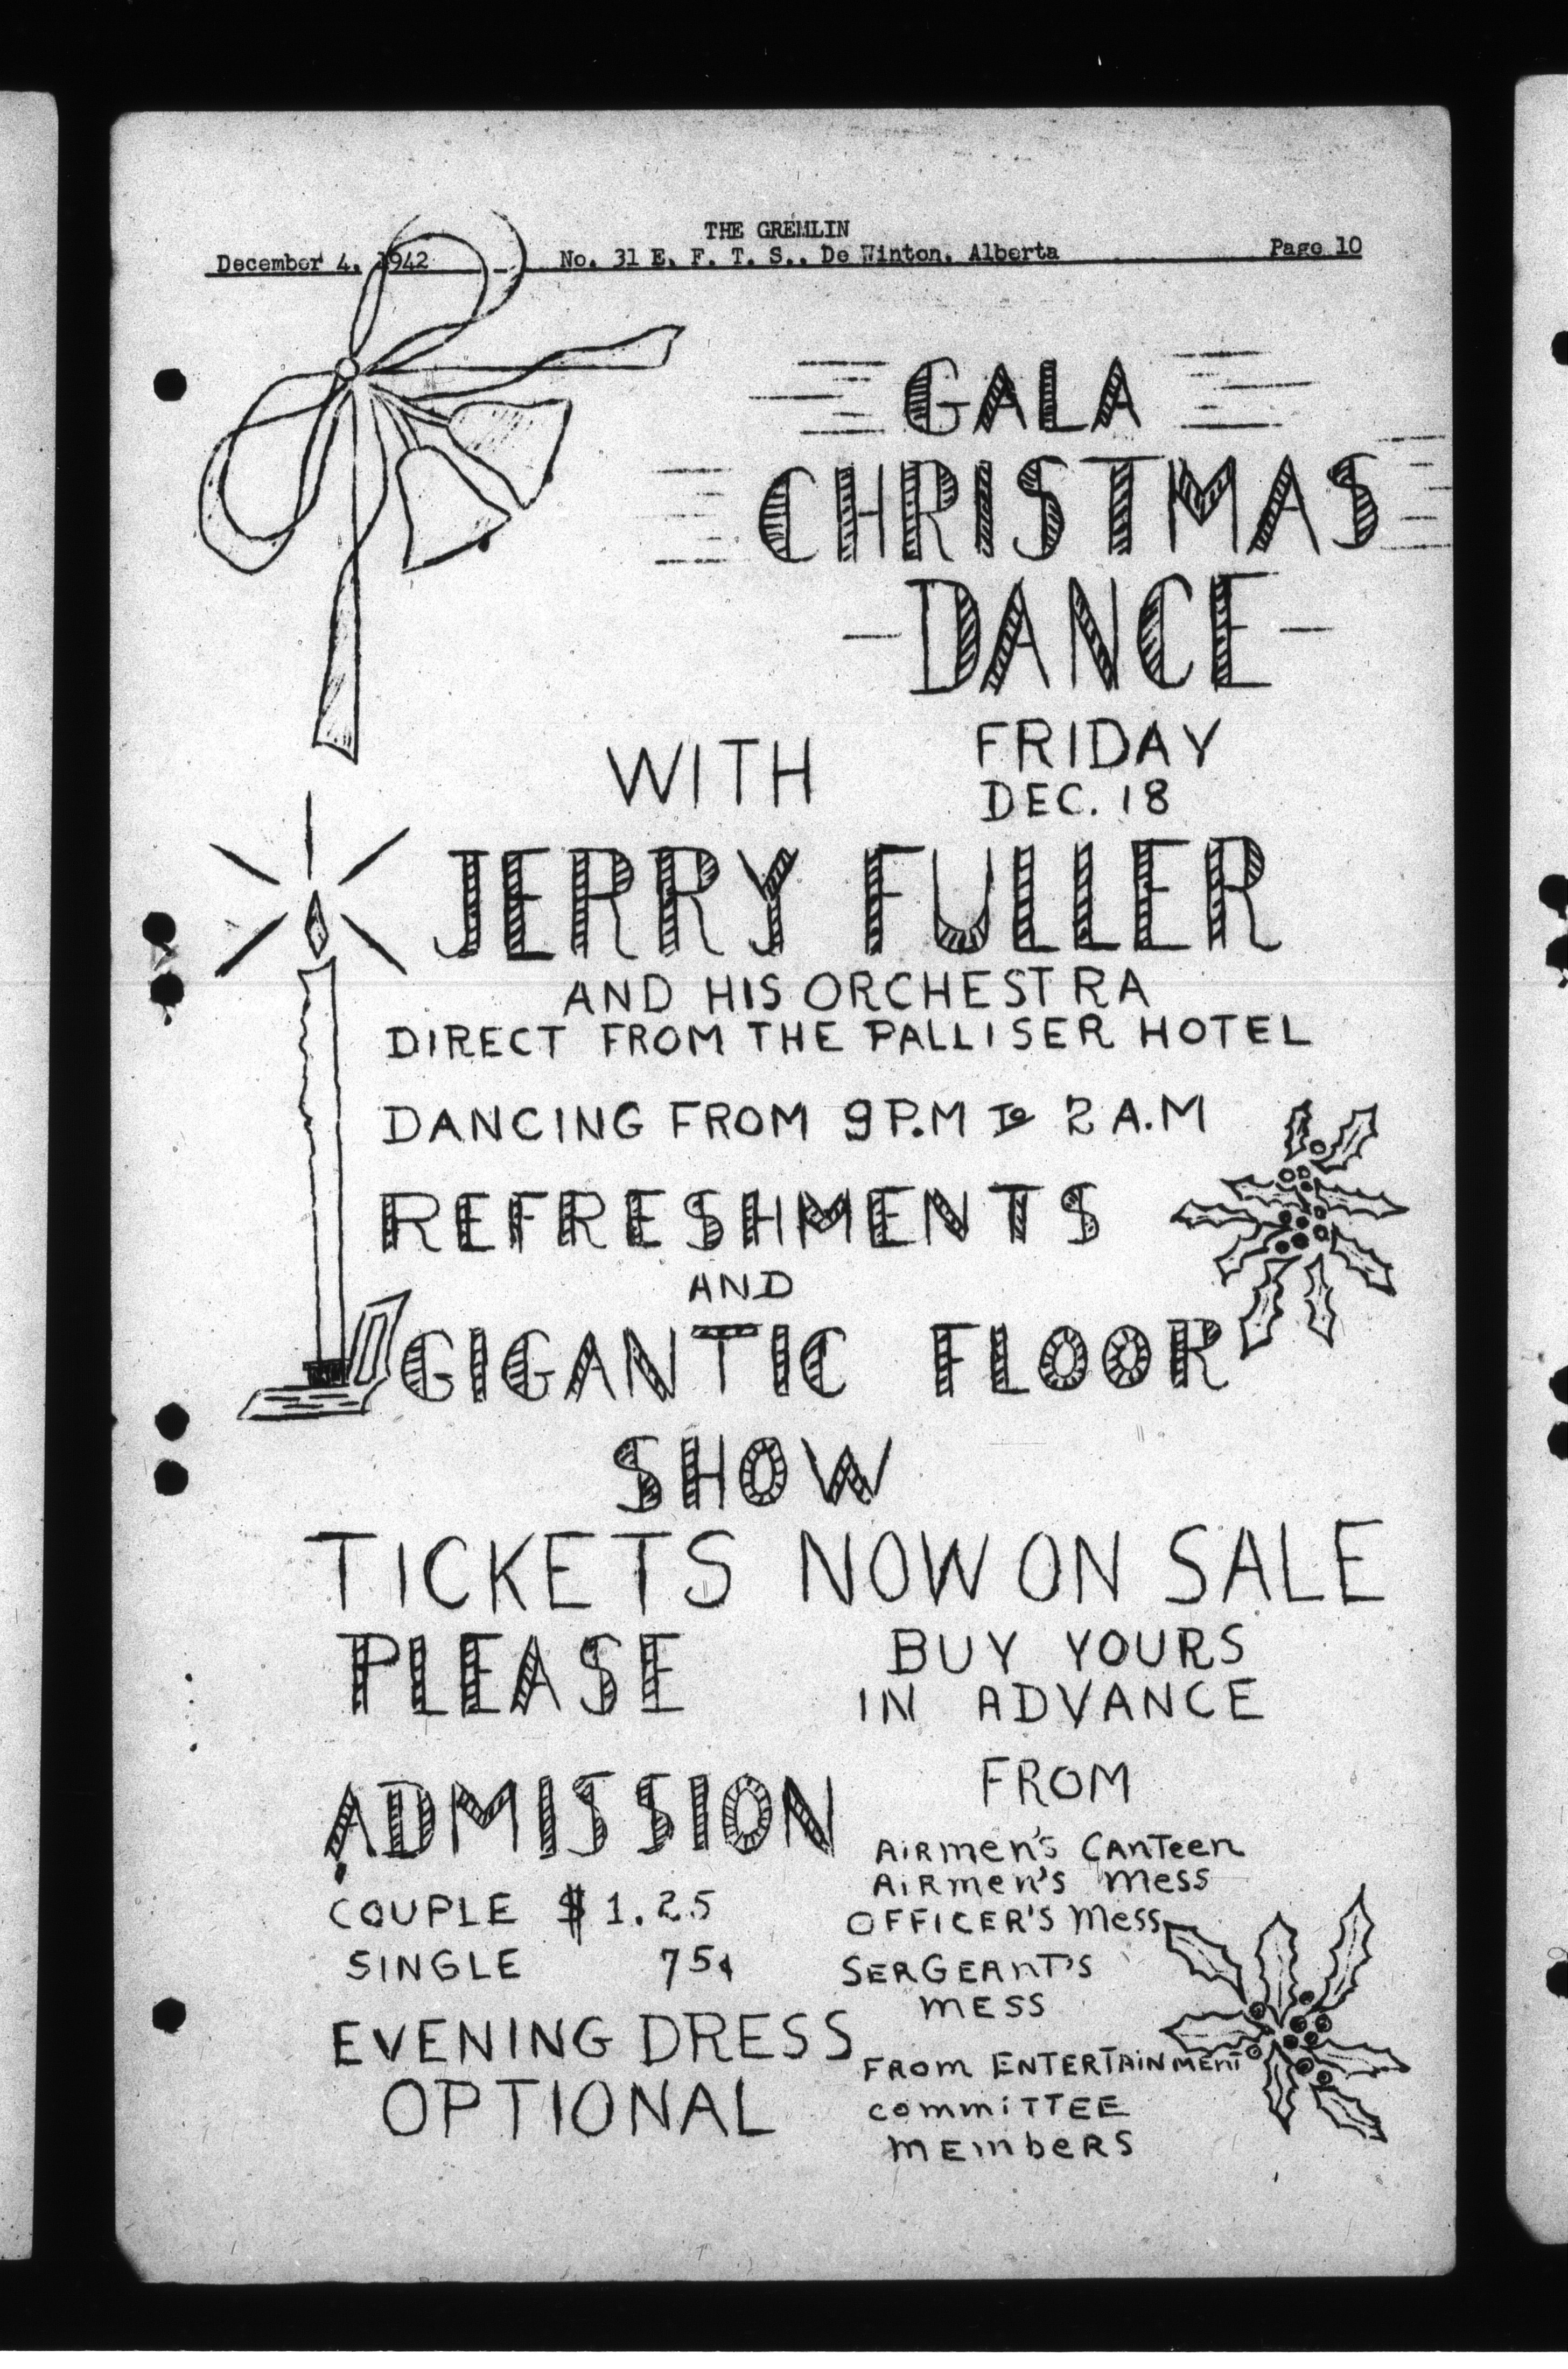 THE GREMLIN
December 4, 1942 No. 31 E. F. T. S., De Winton, Alberta Page 10
GALA
CHRISTMAS
-DANCE-
FRIDAY
DEC. 18
WITH
JERRY FULLER
AND HIS ORCHESTRA
DIRECT FROM THE PALLISER HOTEL
DANCING FROM 9 P.M To 2 A.M
REFRESHMENTS
AND
GIGANTIC FLOOR
SHOW
TICKETS NOW ON SALE
PLEASE
BUY YOURS
IN ADVANCE
FROM
AIRmen's CAnTeen
AIRmen's mess
OFFICER'S mess
SERGEAnT'S
mESS
FROm ENTERTAINMEnT
committEE
mEmbeRS
ADMISSION
COUPLE $1.25
SINGLE 75¢
EVENING DRESS
OPTIONAL